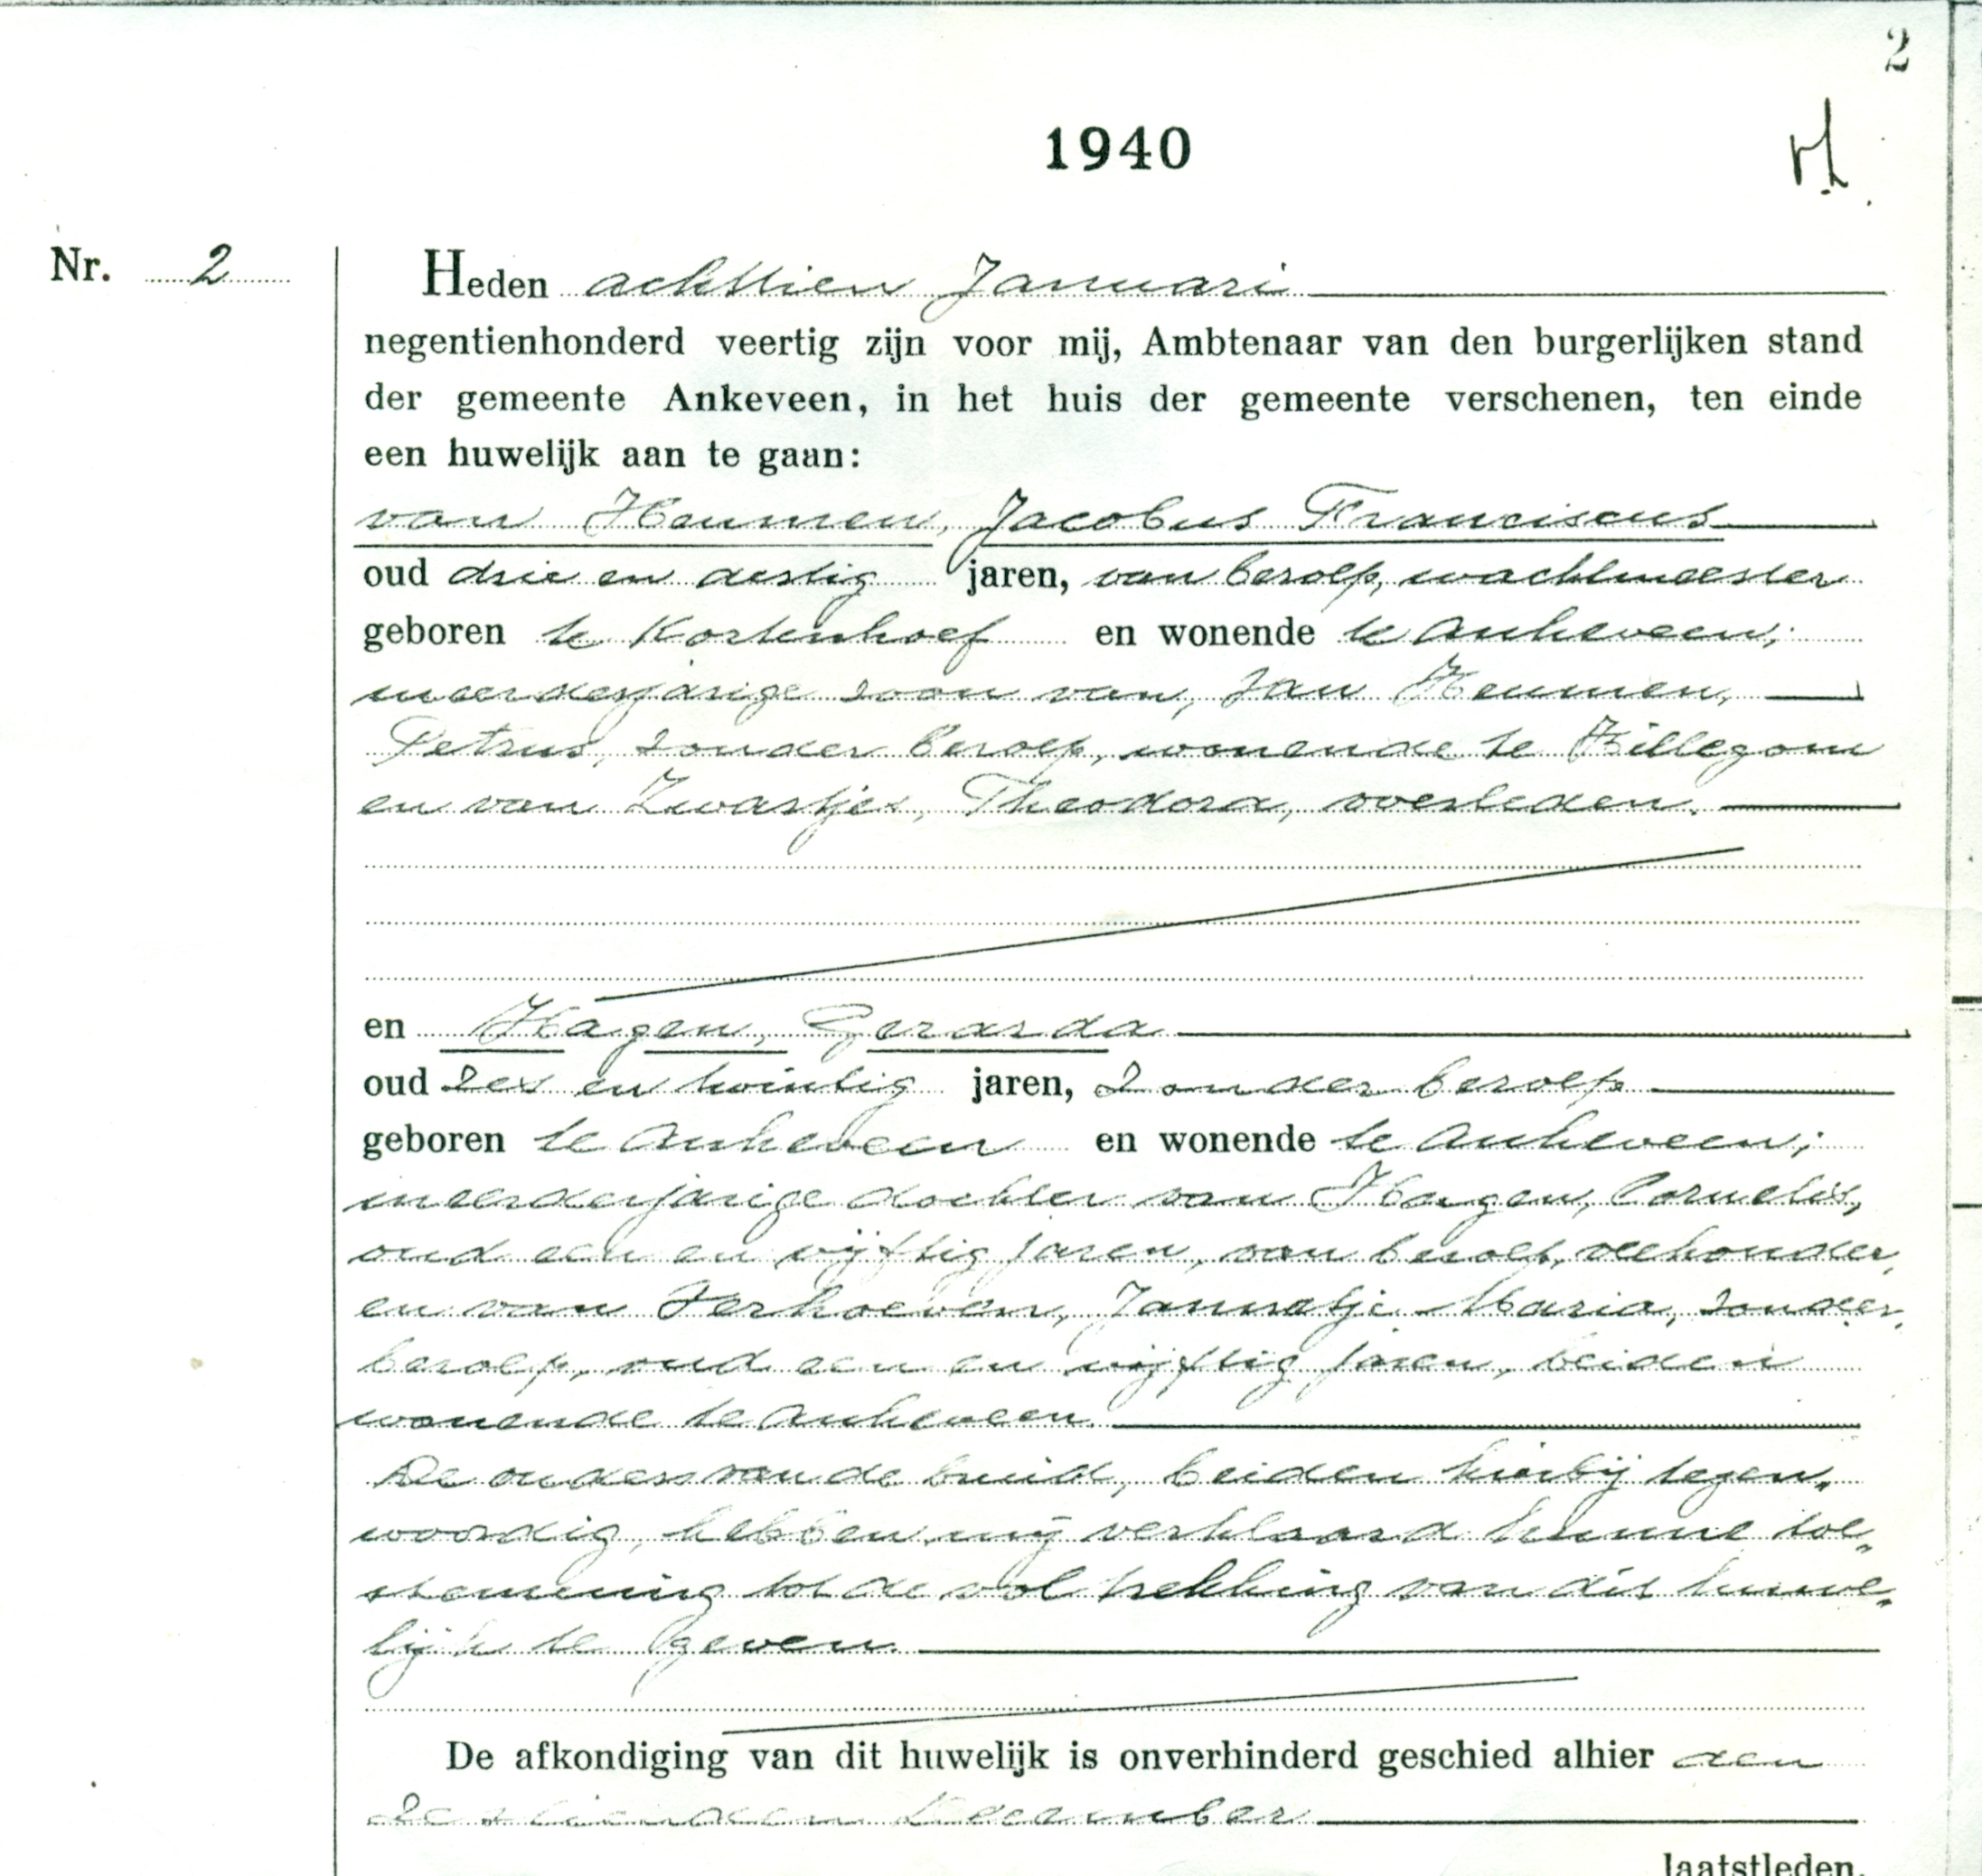 2
1940
Nr. 2
Heden achttien Januari
negentienhonderd veertig zijn voor mij, Ambtenaar van den burgerlijken stand
der gemeente Ankeveen, in het huis der gemeente verschenen, ten einde
een huwelijk aan te gaan:
van Heumen, Jacobus Franciscus
oud drie en dertig jaren, van beroep, wachtmeester
geboren te Kortenhoef en wonende te Ankeveen;
meerderjarige zoon van, van Heumen,
Petrus, zonder beroep, wonende te Hillegom
en van Zwartjes, Theodora, overleden.
en Hagen, Gerarda
oud zes en twintig jaren, zonder beroep
geboren te Ankeveen en wonende te Ankeveen;
meerderjarige dochter van Hagen, Cornelis,
oud een en vijftig jaren, van beroep, veehouder,
en van Verhoeven, Jannetje Maria, zonder
beroep, oud een en vijftig jaren, beiden
wonende te Ankeveen.
De ouders van de bruid, beiden hierbij tegen„
woordig, hebben mij verklaard hunne toe„
stemming tot de voltrekking van dit huwe„
lijk te geven.
De afkondiging van dit huwelijk is onverhinderd geschied alhier den
zestienden December
laatstleden.